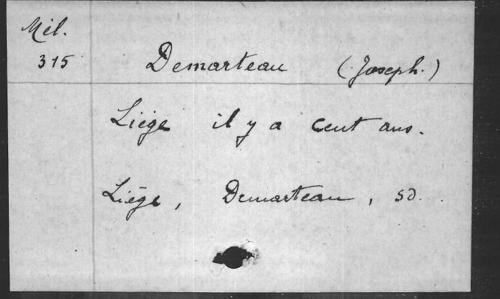 Mél.
315
Demarteau (Joseph.)
Liége il y a cent ans.
Liége, Demarteau, sd.